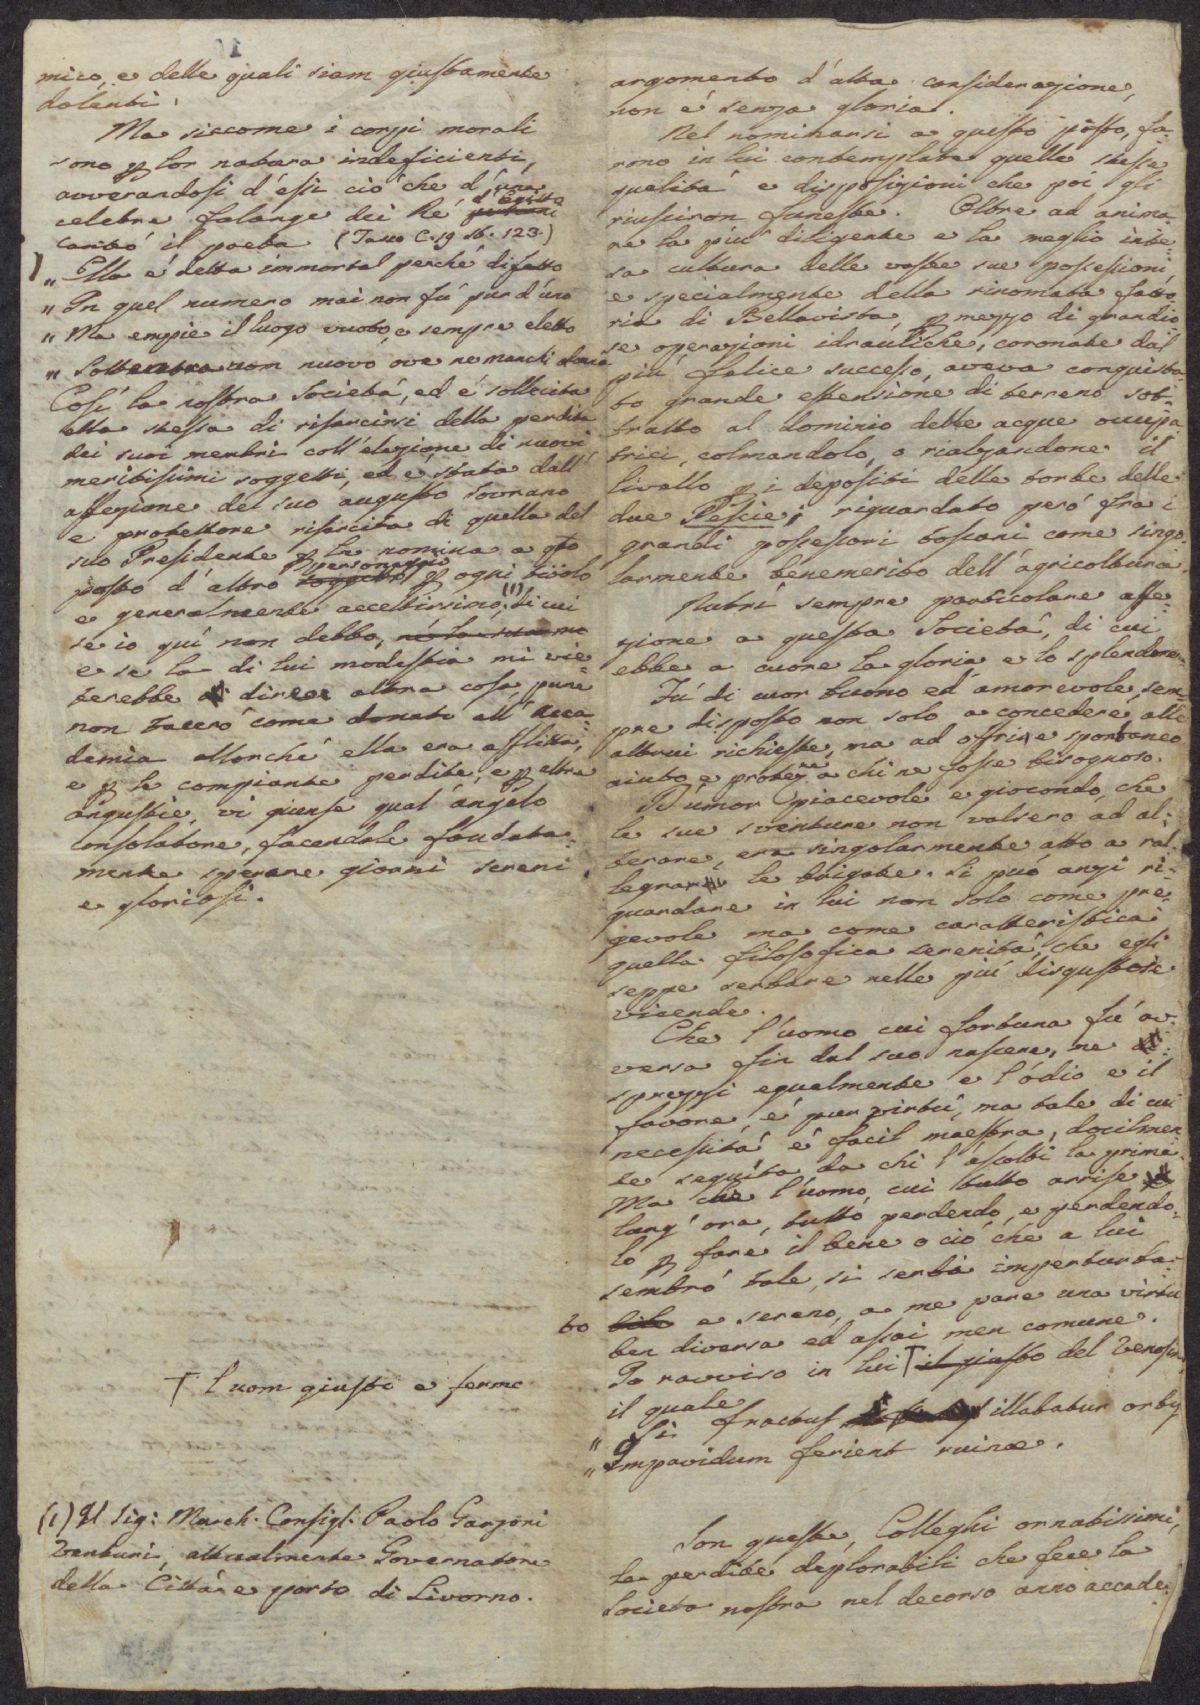 argomento d'alta considerazione,
non é senza gloria.
Nel nominarsi a questo posto, fu-
rono in lui contemplate quelle stesse
qualitá e disposizioni che poi gli
riusciron funeste. Oltre ad anima-
re la piú diligente e la meglio inte-
sa cultura delle vaste sue possessioni,
e specialmente della rinomata fatto-
ria di Bellavista, p mezzo di grandio-
se operazioni idrauliche, coronate dal
piú felice successo, aveva conquista-
to grande estensione di terreno sot-
tratto al dominio delle acque occupa-
trici, colmandolo, o rialzandone il
livello p i depositi delle torbe delle
due Pescie; riguardato peró fra i
grandi possessori toscani come singo-
larmente benemerito dell'agricoltura.
Nutrí sempre particolare affe-
zione a questa Societá, di cui
ebbe a cuore la gloria e lo splendore.
Fú di cuor buono ed amorevole, sem-
pre disposto non solo a concedere alle
altrui richieste, ma ad offrire spontaneo
aiuto, e protez.ne a chi ne fosse bisognoso.
D'umor piacevole e giocondo, che
le sue sventure non valsero ad al-
terare, era singolarmente atto a ral-
legrar le brigate. Si puó anzi ri-
guardare in lui non solo come pre-
gevole ma come caratteristica
quella filosofica serenitá, che egli
seppe serbare nelle piú disgustose
vicende.
Che l'uomo cui fortuna fú av-
versa fin dal suo nascere, ne di-
sprezzi egualmente e l'ódio e il
favore, é pur virtú, ma tale di cui
necessitá é facil maestra, docilmen-
te seguita da chi l'ascolti la prima.
Ma che l'uomo, cui tutto arrise
lung'ora, tutto perdendo, e perdendo-
lo p fare il bene o ció che a lui
sembró tale, si serbi imperturba-
to bile e sereno, a me pare una virtú
ben diversa ed assai men comune.
Io ravviso in lui T il giusto del Venosin,
il quale
" Si fractus illabatur orbis
" Impavidum ferient ruinae.
Son queste, Colleghi ornatissimi,
le perdite deplorabili che fece la
Societa nostra nel decorso anno accade-
mico, e delle quali siam giustamente
dolenti.
Ma siccome i corpi morali
sono p lor natura indeficienti,
avverandosi d'essi ció che d'una
celebre falange dei Ré d'Egitto
cantó il poeta (Tasso C. 19 st. 123.)
" Ella é detta immortal perché difetto
" In quel numero mai non fú pur d'uno
" Ma empie il luogo vuoto, e sempre eletto
" Sottentra uom nuovo, ove ne manchi alcuno
Cosí la nostra Societá, ed é sollecita
ella stessa di risarcirsi della perdita
dei suoi membri coll'elezione di nuovi
meritissimi soggetti, ed é stata dall'
affezione del suo augusto Sovrano
e protettore risarcita di quella del
suo Presidente p la nomina a qto
posto d'altro soggetto personaggio p ogni titolo
e generalmente accettissimo, (1) di cui
se io quí non debbo,
e se la di lui modestia mi vie-
terebbe di dirne altra cosa, pure
non taceró come donato all'Acca-
demia allorché ella era afflitta,
e p le compiante perdite, e p altre
angustie, vi giunse qual'angelo
consolatore, facendole fondata-
mente sperare giorni sereni
e gloriosi.
T l'uom giusto e fermo
(1) Il Sig: March. Consigl. Paolo Garzoni
Venturi, attualmente Governatore
della Cittá e porto di Livorno.